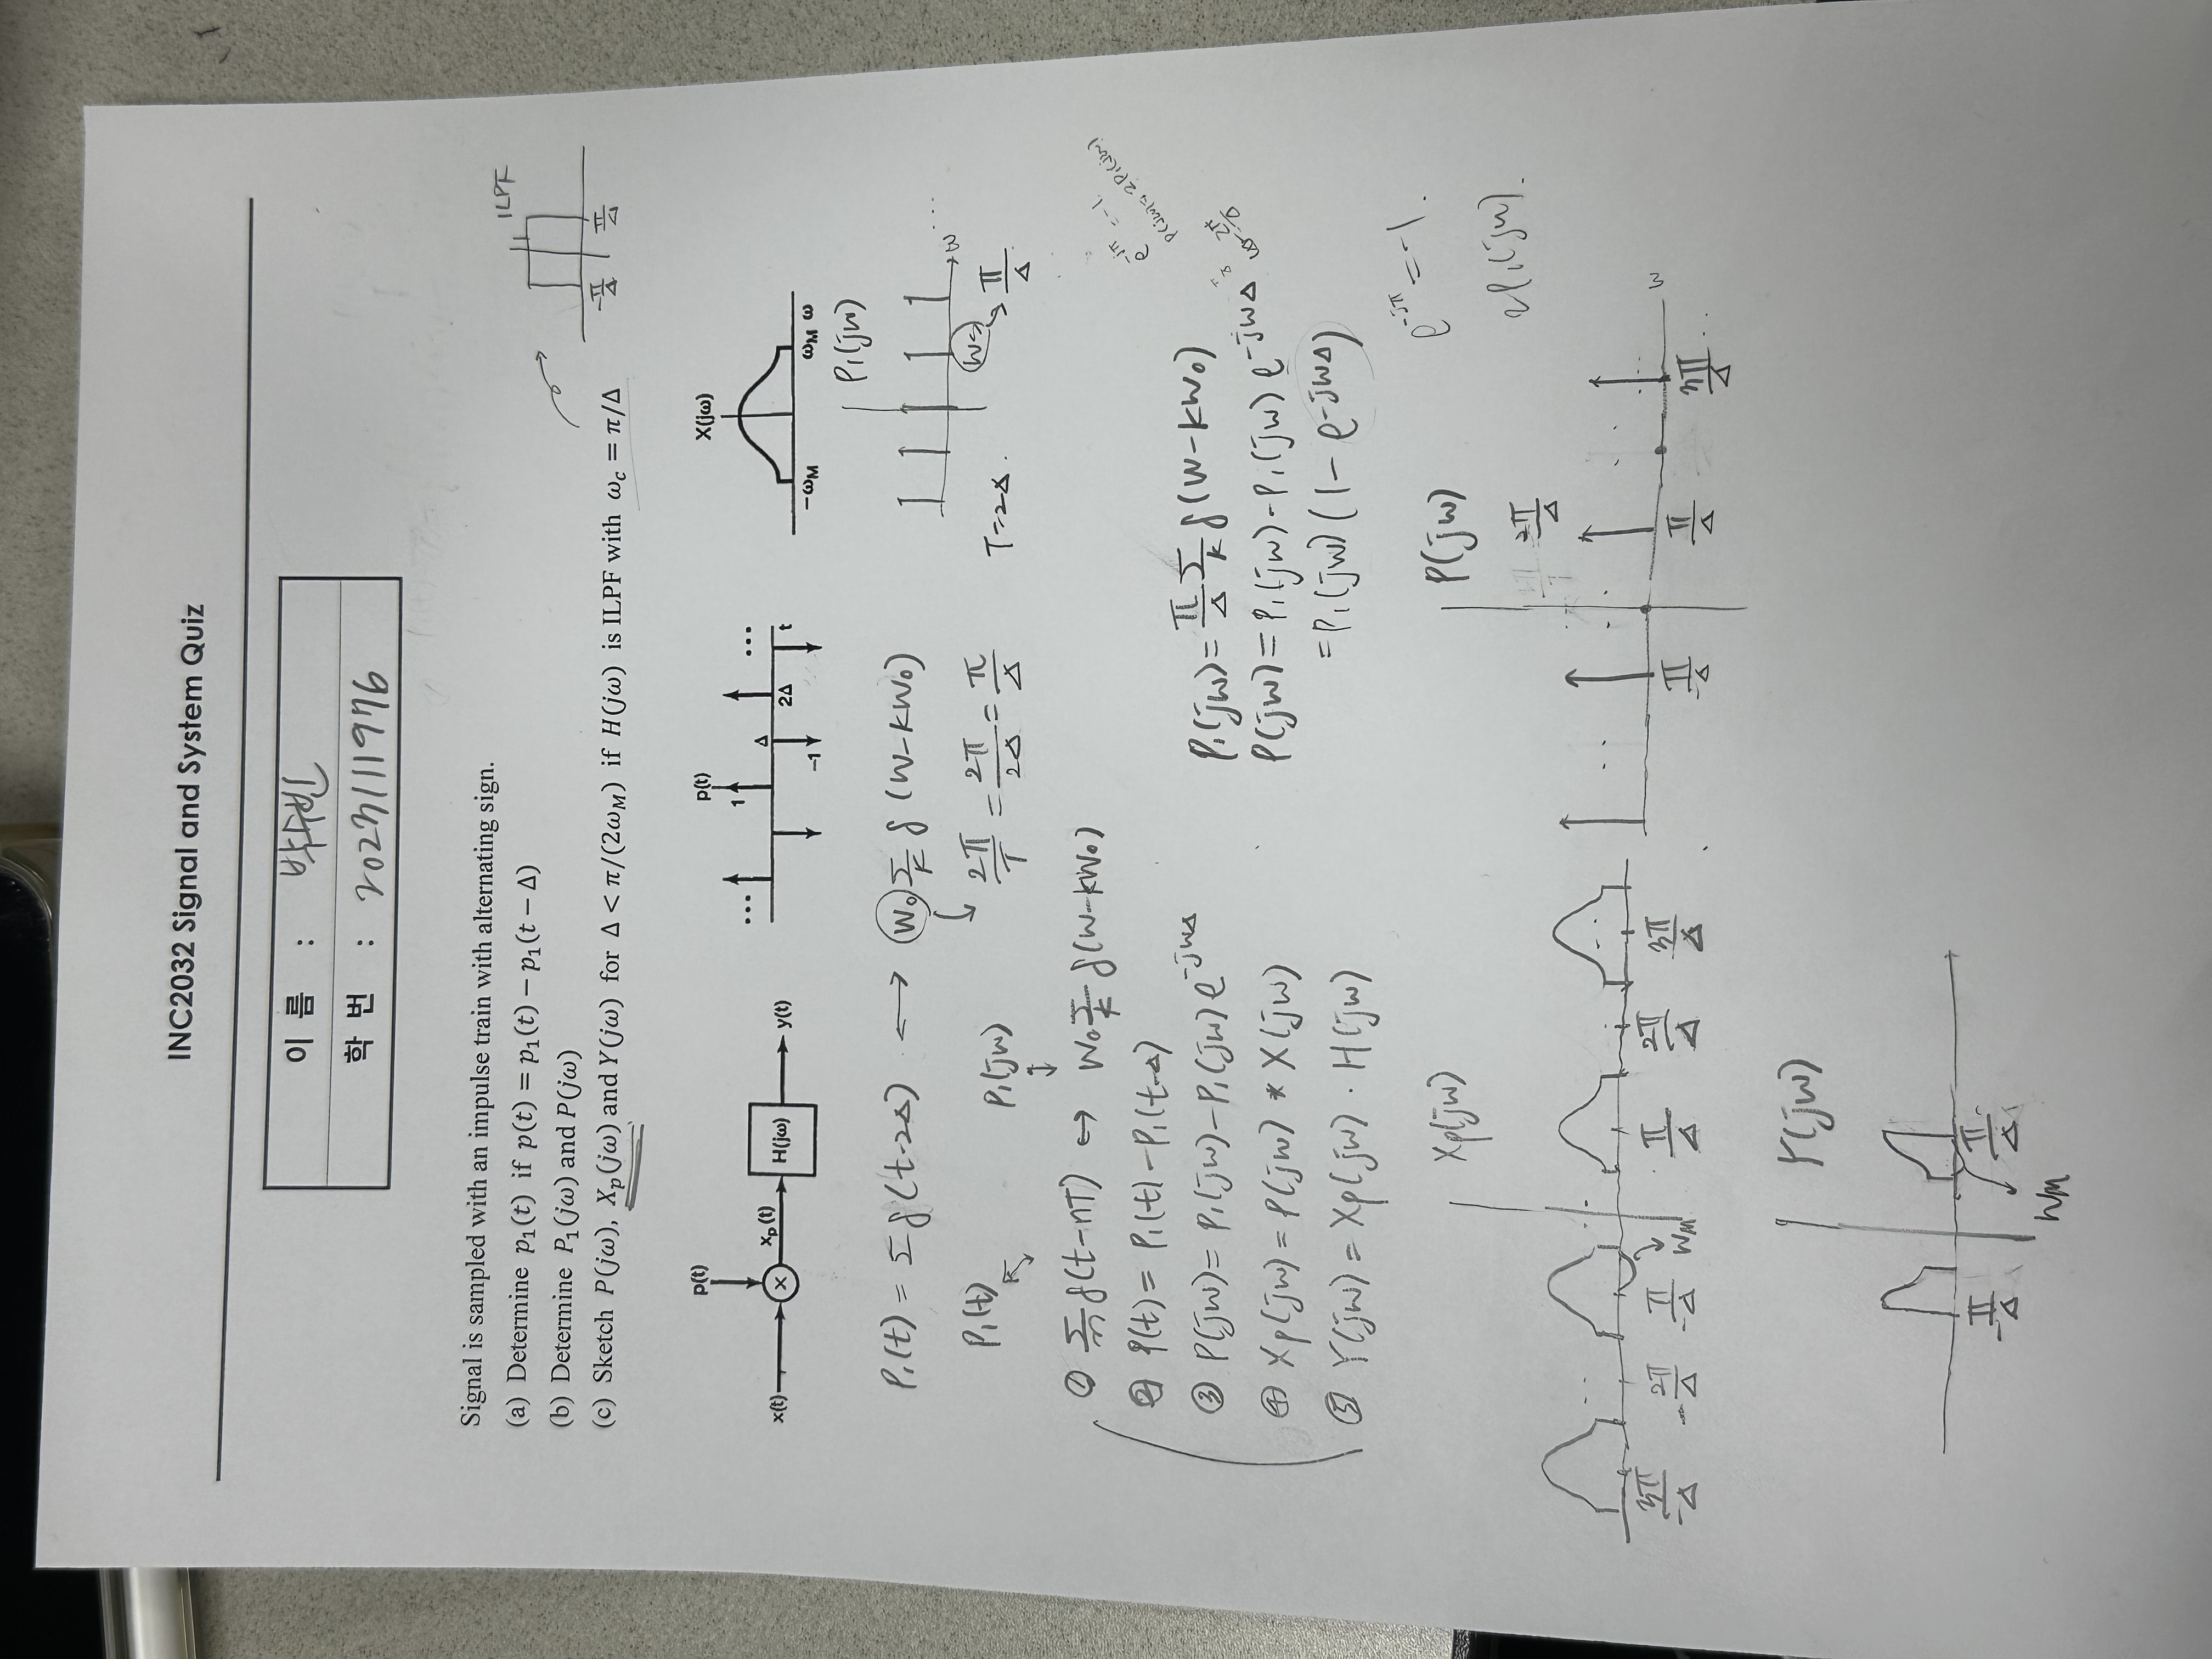 INC2032 Signal and System Quiz
이 름 : 박수빈
학 번 : 2023111976
Signal is sampled with an impulse train with alternating sign.
(a) Determine p₁(t) if p(t) = p₁(t) − p₁(t − Δ)
(b) Determine P₁(jω) and P(jω)
(c) Sketch P(jω), Xₚ(jω) and Y(jω) for Δ < π/(2ω_M) if H(jω) is ILPF with ω_c = π/Δ
ILPF
1
-π/Δ π/Δ
p(t)
x(t) × xₚ(t) H(jω) y(t)
p(t)
... 1 Δ ...
-1 2Δ t
X(jω)
-ω_M ω_M ω
P₁(jw)
P₁(t) = Σδ(t-2Δ) ↔ W₀ Σ_k δ(W-kW₀)
2π/T = 2π/2Δ = π/Δ
T=2Δ.
w ...
Ws → π/Δ
P₁(t) P₁(jw)
① Σ_n δ(t-nT) ↔ W₀ Σ_k δ(w-kW₀)
② P(t) = P₁(t) - P₁(t-Δ)
③ P(jw) = P₁(jw) - P₁(jw) e^-jwΔ
④ Xp(jw) = P(jw) * X(jw)
⑤ Y(jw) = Xp(jw) · H(jw)
e^-jπ = -1
P(jw) = 2P₁(jw)
P₁(jw) = π/Δ Σ_k δ(W-kW₀)
P(jw) = P₁(jw) - P₁(jw) e^-jwΔ
= P₁(jw) (1 - e^-jwΔ)
e^-jπ = -1.
2P₁(jw).
Xp(jw)
-3π/Δ -2π/Δ -π/Δ W_M π/Δ 2π/Δ 3π/Δ
P(jw)
2π/Δ
-π/Δ π/Δ 3π/Δ ... w
Y(jw)
-π/Δ π/Δ
W_M